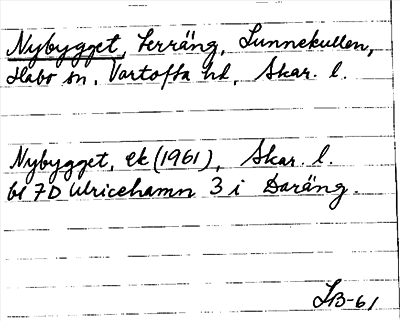 Nybygget, Terräng, Sunnekullen,
Habo sn, Vartofta hd, Skar. l.
Nybygget, ek (1961), Skar. l.
bl 7D Ulricehamn 3 i Daräng.
SB-61